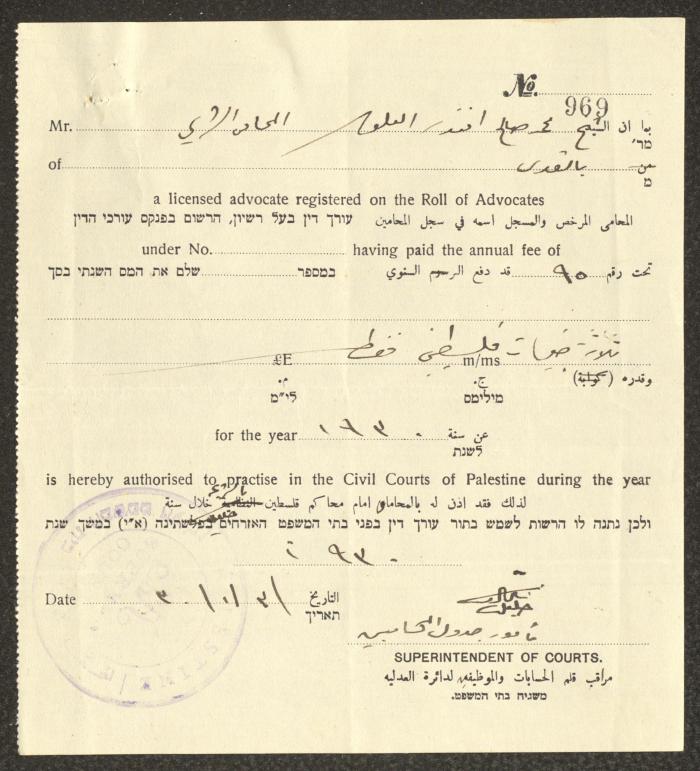 No. 969
Mr. المحامي الشرعي افندي صالح بما ان الشيخ
מר'
of بالقدس من
מ
a licensed advocate registered on the Roll of Advocates
المحامي المرخص والمسجل اسمه في سجل المحامين עורך דין בעל רשיון, הרשום בפנקס עורכי הדין
under No. having paid the annual fee of
تحت رقم ٩٥ قد دفع الرسم السنوي במספר שלם את המס השנתי בסך
ثلاثة جنيهات فلسطيني فقط
£E m/ms
وقدره
م. ج.
לי"מ מילימס
for the year ١٩٣٠ عن سنة
לשנת
is hereby authorised to practise in the Civil Courts of Palestine during the year
لذلك فقد اذن له بالمحاماة امام محاكم فلسطين النظامية خلال سنة
ולכן נתנה לו הרשות לשמש בתור עורך דין בפני בתי המשפט האזרחים בפלשתינה (א"י) במשך שנת
١٩٣٠
Date ٣٠/١/٣١ التاريخ
תאריך
مأمور جدول المحامين
SUPERINTENDENT OF COURTS.
مراقب قلم الحسابات والموظفين لدائرة العدلية
משגיח בתי המשפט.